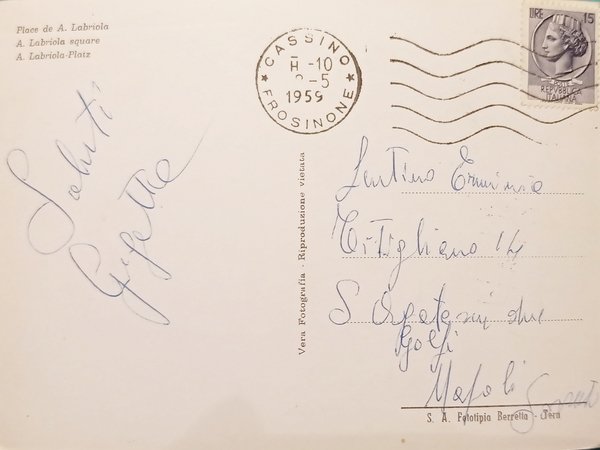 Place de A. Labriola
A. Labriola square
A. Labriola-Platz
CASSINO
H -10
-5
1959
FROSINONE
LIRE 15
POSTE
REPVBBLICA
ITALIANA
Saluti
Vera Fotografia - Riproduzione vietata
Lentino Erminia
Titigliano 14
S
Golfi
Napoli
S. A. Fototipia Berretta - Terni